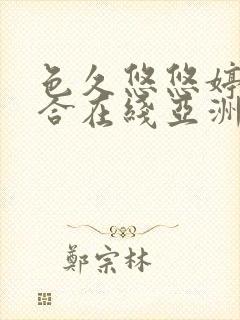 色久悠悠婷
合在綫亞洲
鄭宗林